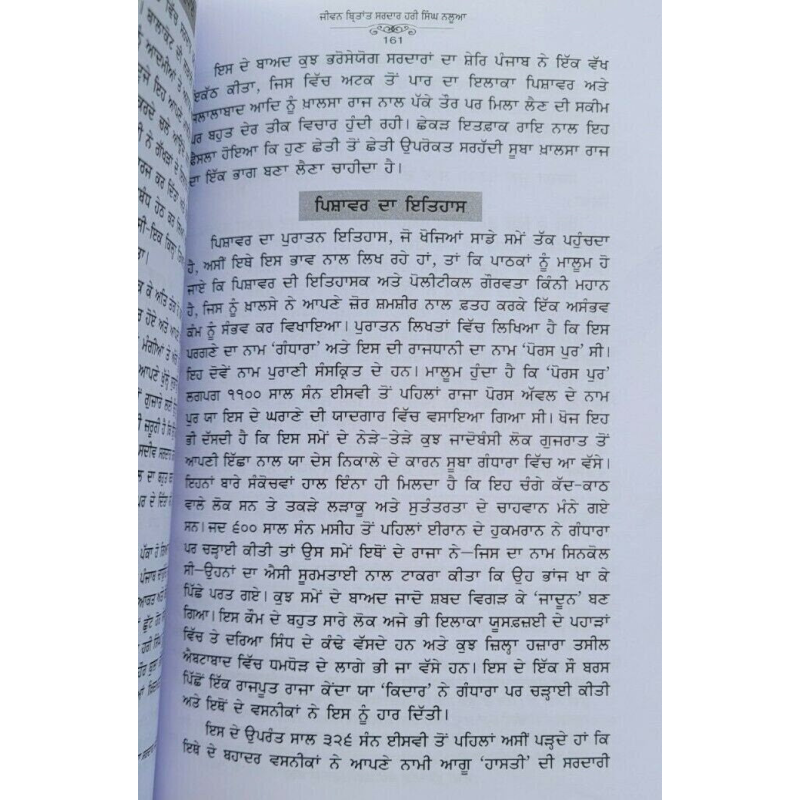 ਜੀਵਨ ਬ੍ਰਿਤਾਂਤ ਸਰਦਾਰ ਹਰੀ ਸਿੰਘ ਨਲੂਆ
161
ਇਸ ਦੇ ਬਾਅਦ ਕੁਝ ਭਰੋਸੇਯੋਗ ਸਰਦਾਰਾਂ ਦਾ ਸ਼ੇਰਿ ਪੰਜਾਬ ਨੇ ਇੱਕ ਵੱਖ
ਇਕੱਠ ਕੀਤਾ, ਜਿਸ ਵਿੱਚ ਅਟਕ ਤੋਂ ਪਾਰ ਦਾ ਇਲਾਕਾ ਪਿਸ਼ਾਵਰ ਅਤੇ
ਜਲਾਲਾਬਾਦ ਆਦਿ ਨੂੰ ਖ਼ਾਲਸਾ ਰਾਜ ਨਾਲ ਪੱਕੇ ਤੌਰ ਪਰ ਮਿਲਾ ਲੈਣ ਦੀ ਸਕੀਮ
ਪਰ ਬਹੁਤ ਦੇਰ ਤੀਕ ਵਿਚਾਰ ਹੁੰਦੀ ਰਹੀ। ਛੇਕੜ ਇਤਫ਼ਾਕ ਰਾਇ ਨਾਲ ਇਹ
ਫ਼ੈਸਲਾ ਹੋਇਆ ਕਿ ਹੁਣ ਛੇਤੀ ਤੋਂ ਛੇਤੀ ਉਪਰੋਕਤ ਸਰਹੱਦੀ ਸੂਬਾ ਖ਼ਾਲਸਾ ਰਾਜ
ਦਾ ਇੱਕ ਭਾਗ ਬਣਾ ਲੈਣਾ ਚਾਹੀਦਾ ਹੈ।
ਪਿਸ਼ਾਵਰ ਦਾ ਇਤਿਹਾਸ
ਪਿਸ਼ਾਵਰ ਦਾ ਪੁਰਾਤਨ ਇਤਿਹਾਸ, ਜੋ ਖੋਜਿਆਂ ਸਾਡੇ ਸਮੇਂ ਤੱਕ ਪਹੁੰਚਦਾ
ਹੈ, ਅਸੀਂ ਇਥੇ ਇਸ ਭਾਵ ਨਾਲ ਲਿਖ ਰਹੇ ਹਾਂ, ਤਾਂ ਕਿ ਪਾਠਕਾਂ ਨੂੰ ਮਾਲੂਮ ਹੋ
ਜਾਏ ਕਿ ਪਿਸ਼ਾਵਰ ਦੀ ਇਤਿਹਾਸਕ ਅਤੇ ਪੋਲੀਟੀਕਲ ਗੌਰਵਤਾ ਕਿੰਨੀ ਮਹਾਨ
ਹੈ, ਜਿਸ ਨੂੰ ਖ਼ਾਲਸੇ ਨੇ ਆਪਣੇ ਜ਼ੋਰ ਸ਼ਮਸ਼ੀਰ ਨਾਲ ਫ਼ਤਹ ਕਰਕੇ ਇੱਕ ਅਸੰਭਵ
ਕੰਮ ਨੂੰ ਸੰਭਵ ਕਰ ਵਿਖਾਇਆ। ਪੁਰਾਤਨ ਲਿਖਤਾਂ ਵਿੱਚ ਲਿਖਿਆ ਹੈ ਕਿ ਇਸ
ਪਰਗਣੇ ਦਾ ਨਾਮ 'ਗੰਧਾਰਾ' ਅਤੇ ਇਸ ਦੀ ਰਾਜਧਾਨੀ ਦਾ ਨਾਮ 'ਪੋਰਸ ਪੁਰ' ਸੀ।
ਇਹ ਦੋਵੇਂ ਨਾਮ ਪੁਰਾਣੀ ਸੰਸਕ੍ਰਿਤ ਦੇ ਹਨ। ਮਾਲੂਮ ਹੁੰਦਾ ਹੈ ਕਿ 'ਪੋਰਸ ਪੁਰ'
ਲਗਪਗ ੧੧੦੦ ਸਾਲ ਸੰਨ ਈਸਵੀ ਤੋਂ ਪਹਿਲਾਂ ਰਾਜਾ ਪੋਰਸ ਅੱਵਲ ਦੇ ਨਾਮ
ਪੁਰ ਯਾ ਇਸ ਦੇ ਘਰਾਣੇ ਦੀ ਯਾਦਗਾਰ ਵਿੱਚ ਵਸਾਇਆ ਗਿਆ ਸੀ। ਖੋਜ ਇਹ
ਭੀ ਦੱਸਦੀ ਹੈ ਕਿ ਇਸ ਸਮੇਂ ਦੇ ਨੇੜੇ-ਤੇੜੇ ਕੁਝ ਜਾਦੋਬੰਸੀ ਲੋਕ ਗੁਜਰਾਤ ਤੋਂ
ਆਪਣੀ ਇੱਛਾ ਨਾਲ ਯਾ ਦੇਸ ਨਿਕਾਲੇ ਦੇ ਕਾਰਨ ਸੂਬਾ ਗੰਧਾਰਾ ਵਿੱਚ ਆ ਵੱਸੇ।
ਇਹਨਾਂ ਬਾਰੇ ਸੰਕੋਚਵਾਂ ਹਾਲ ਇੰਨਾ ਹੀ ਮਿਲਦਾ ਹੈ ਕਿ ਇਹ ਚੰਗੇ ਕੱਦ-ਕਾਠ
ਵਾਲੇ ਲੋਕ ਸਨ ਤੇ ਤਕੜੇ ਲੜਾਕੂ ਅਤੇ ਸੁਤੰਤਰਤਾ ਦੇ ਚਾਹਵਾਨ ਮੰਨੇ ਗਏ
ਸਨ। ਜਦ ੬੦੦ ਸਾਲ ਸੰਨ ਮਸੀਹ ਤੋਂ ਪਹਿਲਾਂ ਈਰਾਨ ਦੇ ਹੁਕਮਰਾਨ ਨੇ ਗੰਧਾਰਾ
ਪਰ ਚੜ੍ਹਾਈ ਕੀਤੀ ਤਾਂ ਉਸ ਸਮੇਂ ਇਥੋਂ ਦੇ ਰਾਜਾ ਨੇ—ਜਿਸ ਦਾ ਨਾਮ ਸਿਨਕੋਲ
ਸੀ—ਉਹਨਾਂ ਦਾ ਐਸੀ ਸੂਰਮਤਾਈ ਨਾਲ ਟਾਕਰਾ ਕੀਤਾ ਕਿ ਉਹ ਭਾਂਜ ਖਾ ਕੇ
ਪਿੱਛੇ ਪਰਤ ਗਏ। ਕੁਝ ਸਮੇਂ ਦੇ ਬਾਅਦ ਜਾਦੋ ਸ਼ਬਦ ਵਿਗੜ ਕੇ 'ਜਾਦੂਨ' ਬਣ
ਗਿਆ। ਇਸ ਕੌਮ ਦੇ ਬਹੁਤ ਸਾਰੇ ਲੋਕ ਅਜੇ ਭੀ ਇਲਾਕਾ ਯੂਸਫ਼ਜ਼ਈ ਦੇ ਪਹਾੜਾਂ
ਵਿੱਚ ਤੇ ਦਰਿਆ ਸਿੰਧ ਦੇ ਕੰਢੇ ਵੱਸਦੇ ਹਨ ਅਤੇ ਕੁਝ ਜ਼ਿਲ੍ਹਾ ਹਜ਼ਾਰਾ ਤਸੀਲ
ਐਬਟਾਬਾਦ ਵਿੱਚ ਧਮਧੌੜ ਦੇ ਲਾਗੇ ਭੀ ਜਾ ਵੱਸੇ ਹਨ। ਇਸ ਦੇ ਇੱਕ ਸੌ ਬਰਸ
ਪਿੱਛੋਂ ਇੱਕ ਰਾਜਪੂਤ ਰਾਜਾ ਕੇਂਦਾ ਯਾ 'ਕਿਦਾਰ' ਨੇ ਗੰਧਾਰਾ ਪਰ ਚੜ੍ਹਾਈ ਕੀਤੀ
ਅਤੇ ਇਥੋਂ ਦੇ ਵਸਨੀਕਾਂ ਨੇ ਇਸ ਨੂੰ ਹਾਰ ਦਿੱਤੀ।
ਇਸ ਦੇ ਉਪਰੰਤ ਸਾਲ ੩੨੬ ਸੰਨ ਈਸਵੀ ਤੋਂ ਪਹਿਲਾਂ ਅਸੀਂ ਪੜ੍ਹਦੇ ਹਾਂ ਕਿ
ਇਥੇ ਦੇ ਬਹਾਦਰ ਵਸਨੀਕਾਂ ਨੇ ਆਪਣੇ ਨਾਮੀ ਆਗੂ 'ਹਾਸਤੀ' ਦੀ ਸਰਦਾਰੀ